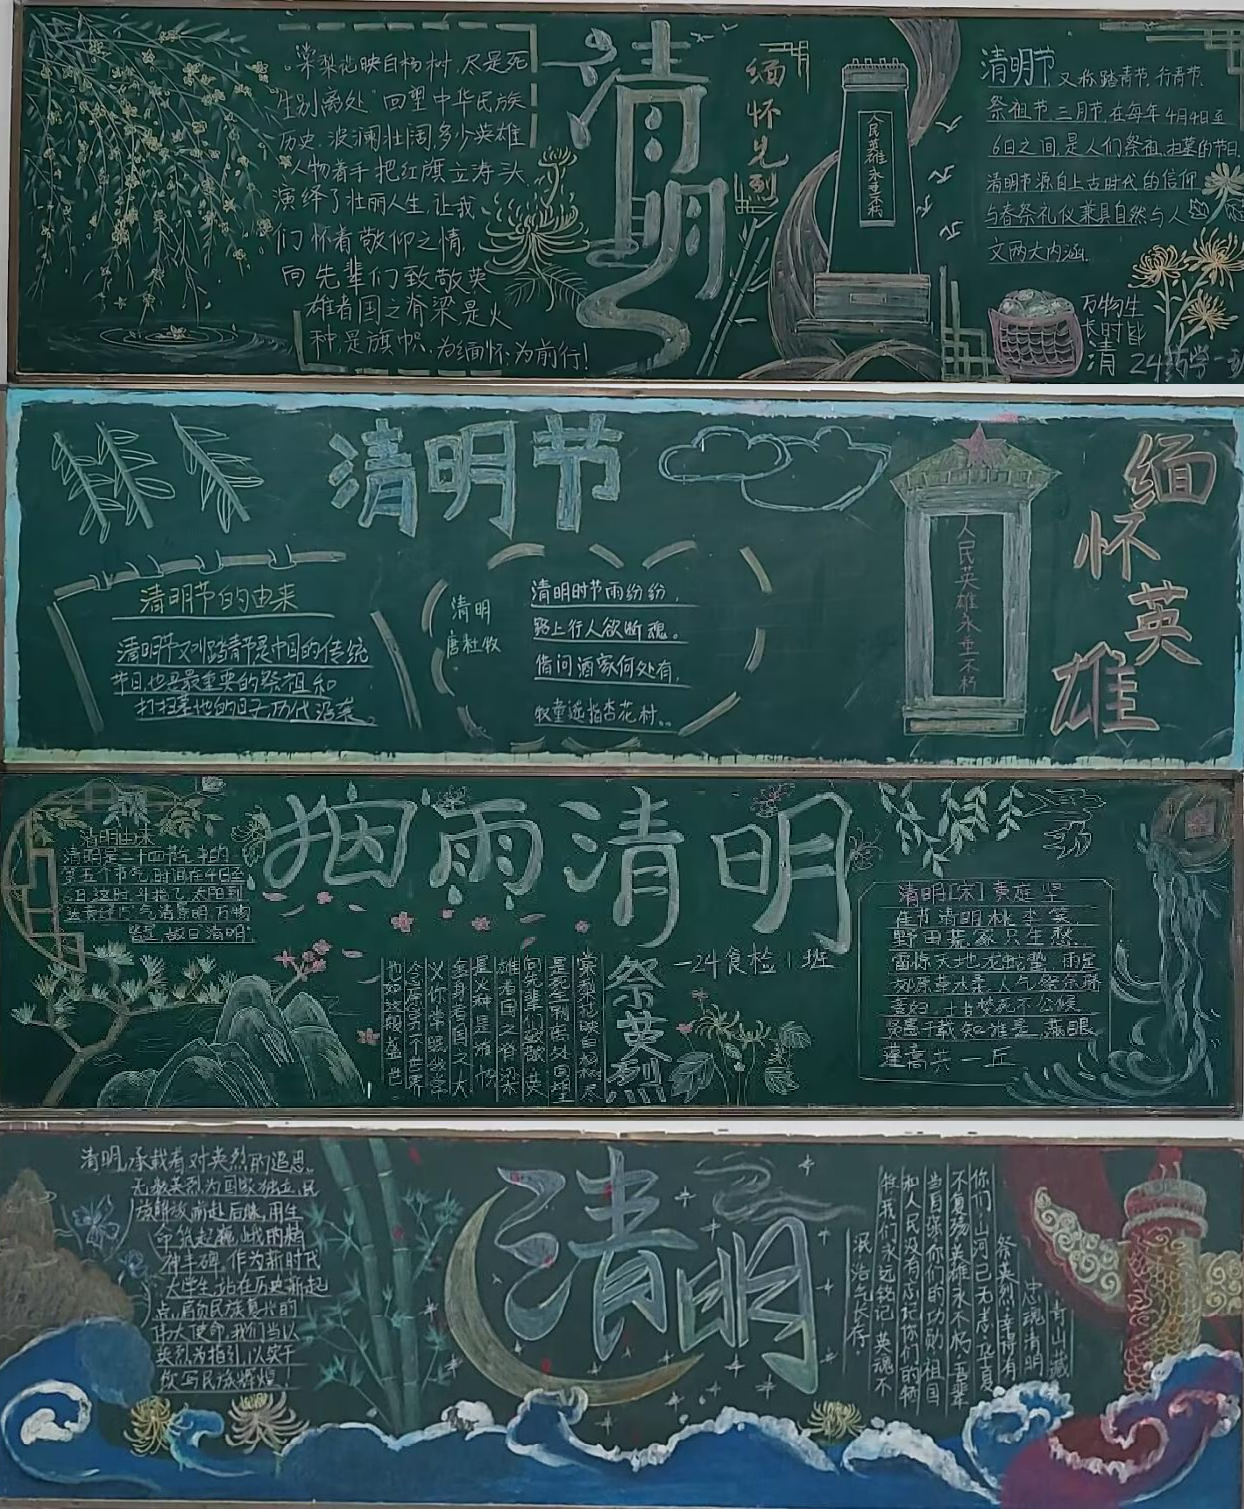 棠梨花映白杨树,尽是死
生别离处"回望中华民族
历史,波澜壮阔,多少英雄
人物着手把红旗立涛头,
演绎了壮丽人生,让我
们怀着敬仰之情,
向先辈们致敬英
雄者国之脊梁,是火
种,是旗帜,为缅怀,为前行!
清明
缅怀先烈
人民英雄永垂不朽
清明节又称踏青节、行青节、
祭祖节三月节,在每年4月4日至
6日之间,是人们祭祖、扫墓的节日,
清明节源自上古时代的信仰
与春祭礼仪兼具自然与人
文两大内涵.
万物生
长时皆
清
24药学一
清明节
清明节的由来
清明节又叫踏青节是中国的传统
节日也是最重要的祭祖和
扫墓的日子
清明
唐杜牧
清明时节雨纷纷,
路上行人欲断魂。
借问酒家何处有,
牧童遥指杏花村。
人民英雄永垂不朽
缅怀英雄
烟雨清明
清明由来
清明是二十四节气中的
第五个节气,时间在4日至
日这时斗指乙太阳到
气清景明万物
皆显,故曰清明"
—24食检1班
祭英烈
棠梨花映白杨树尽
是死生别离处回望
向先辈们致敬英
雄者国之脊梁
是火种是旗帜
今后
也好这颗盛世
清明[宋]黄庭坚
佳节清明桃李笑,
野田荒冢只生愁.
雷惊天地龙蛇蛰 雨足
郊原草木柔.人乞祭余骄
妾妇,士甘焚死不公侯
贤愚千载知谁是,满眼
蓬蒿共一丘
清明,承载着对英烈的追思。
无数英烈为国家独立、民
族解放前赴后继,用生
命筑起巍峨的精
神丰碑。作为新时代
大学生,站在历史新起
点,肩负民族复兴的
伟大使命,我们当以
英烈为指引,以实干
续写民族辉煌!
清明
青山藏
忠魂清明
祭英烈幸得有
你们,山河已无恙,华夏
不复殇英雄永不朽吾辈
当自强你们的功勋祖国
和人民没有忘记你们的牺
牲我们永远铭记英魂不
泯浩气长存